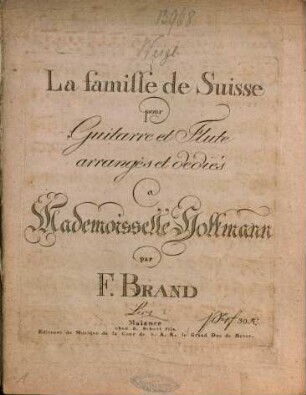 13968
Weigl
La famille de Suisse
pour
Guitarre et Flute
arrangés et dédiés
a
Mademoisselle Hoffmann
par
F. BRAND
Liv:
Maiance
chez B. Schott fils
Editeurs de Musique de la Cour de S. A. R. le Grand Duc de Hesse.
30 Kr